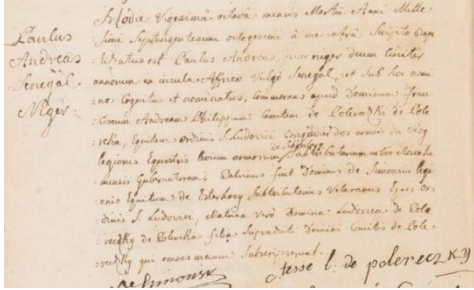 Paulus
Andreas
Senegal
Niger
Hodie Vigesima octava mensis Martii Anni Mille
simi Septingentesimi octogesimi a me infra Scripto Bap
tizatus est Paulus Andreas, puer niger decem Circiter
annorum ex insula Affricæ Vulgo Senegal, et sub hoc nomi
ne Cognitus et nominatus, Commorans apud Dominum Fran
ciscum Andream Philippum Comitem de Polereczky de Pole
recka, Equitem ordinis S. Ludovici
legionis Equestris
mensis Gubernatorem, Patrinus fuit Dominus de Simonis legi
onis Equitum de Esterhazy Subtribunus Veteranus Eques Or
dinis S. Ludovici, Matrina Vero Domina Ludovica de Pole
reczky de Polerecka filia Supradicti Domini Comitis de Pole
reczky qui omnes mecum Subscripserunt.
de Simonis
tesse l. de polereczky